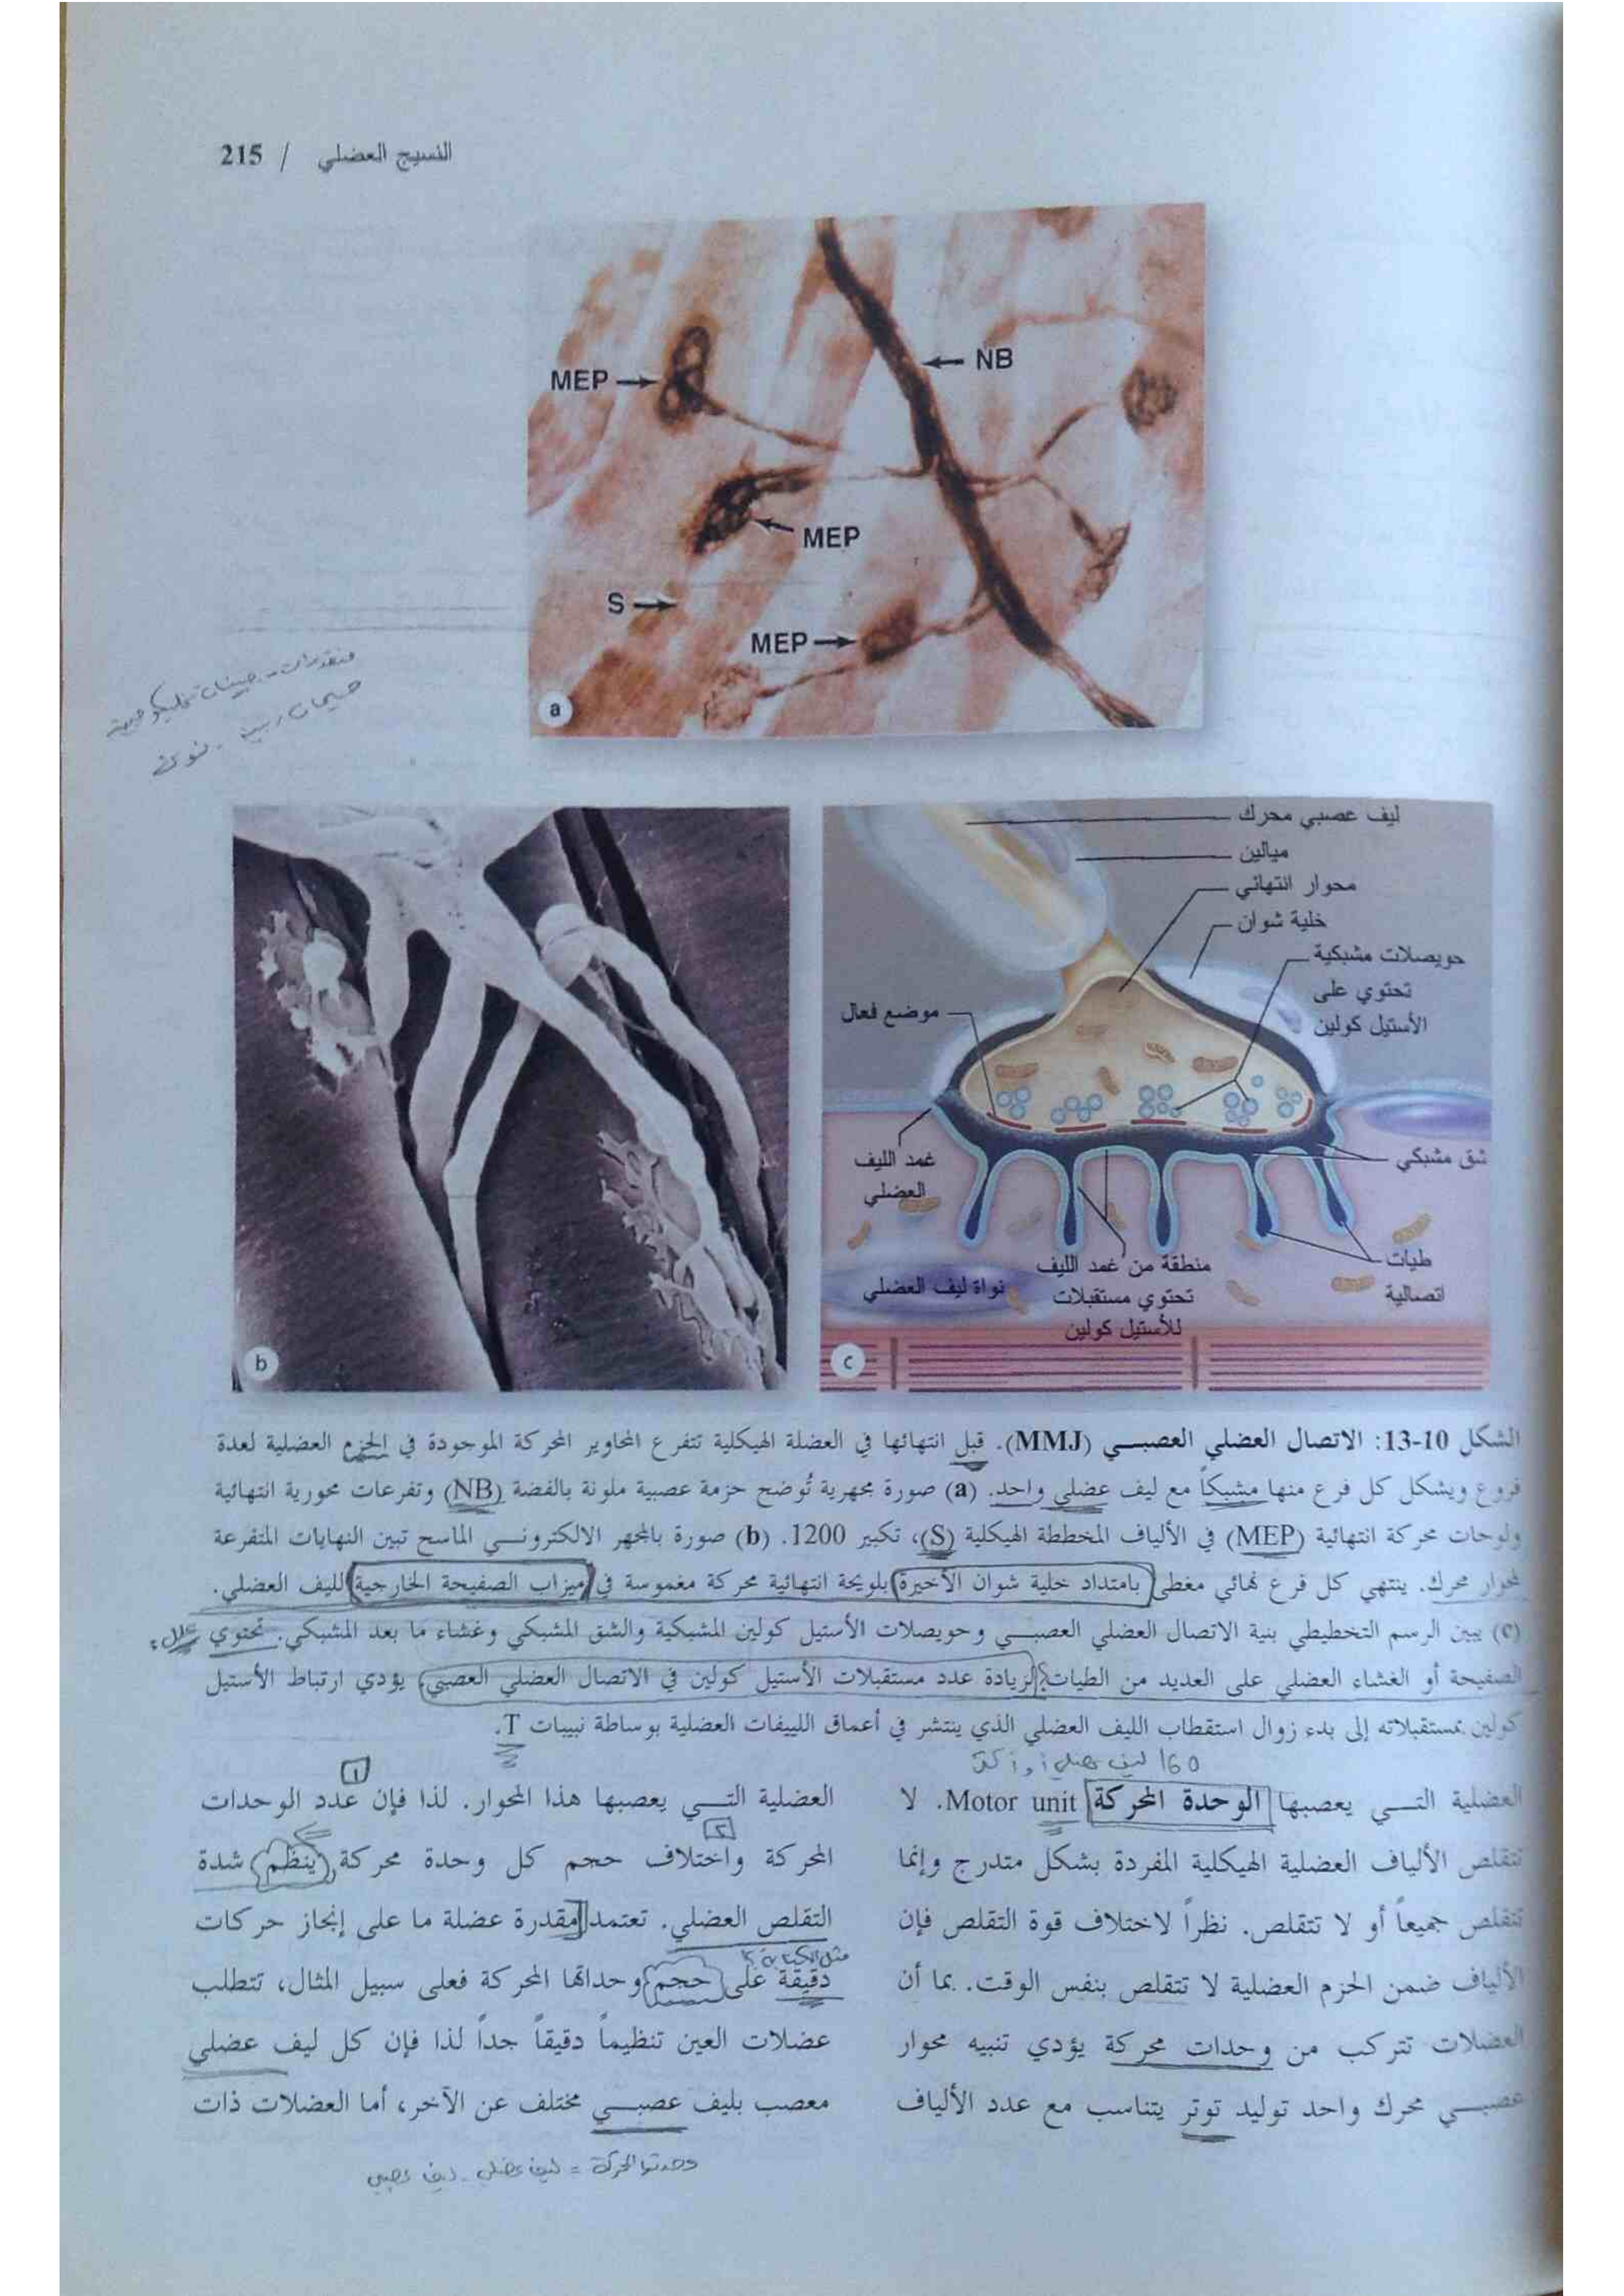 النسيج العضلي / 215
NB
MEP
MEP
S
MEP
a
ليف عصبي محرك
ميالين
محوار انتهائي
خلية شوان
حويصلات مشبكية
تحتوي على
الأستيل كولين
موضع فعال
غمد الليف
العضلي
شق مشبكي
منطقة من غمد الليف
تحتوي مستقبلات
للأستيل كولين
طيات
اتصالية
نواة ليف العضلي
b
c
الشكل 10-13: الاتصال العضلي العصبي (MMJ). قبل انتهائها في العضلة الهيكلية تتفرع المحاوير المحركة الموجودة في الحزم العضلية لعدة
فروع ويشكل كل فرع منها مشبكاً مع ليف عضلي واحد. (a) صورة مجهرية تُوضح حزمة عصبية ملونة بالفضة (NB) وتفرعات محورية انتهائية
ولوحات محركة انتهائية (MEP) في الألياف المخططة الهيكلية (S)، تكبير 1200. (b) صورة بالمجهر الالكتروني الماسح تبين النهايات المتفرعة
لمحوار محرك. ينتهي كل فرع نهائي مغطى بامتداد خلية شوان الأخيرة بلويحة انتهائية محركة مغموسة في ميزاب الصفيحة الخارجية لليف العضلي.
(c) يبين الرسم التخطيطي بنية الاتصال العضلي العصبي وحويصلات الأستيل كولين المشبكية والشق المشبكي وغشاء ما بعد المشبكي. تحتوي علل؟
الصفيحة أو الغشاء العضلي على العديد من الطيات لزيادة عدد مستقبلات الأستيل كولين في الاتصال العضلي العصبي، يؤدي ارتباط الأستيل
كولين بمستقبلاته إلى بدء زوال استقطاب الليف العضلي الذي ينتشر في أعماق اللييفات العضلية بوساطة نبيبات T.
160 ليف عضلي
العضلية التي يعصبها الوحدة المحركة Motor unit. لا
تتقلص الألياف العضلية الهيكلية المفردة بشكل متدرج وإنما
تتقلص جميعاً أو لا تتقلص. نظراً لاختلاف قوة التقلص فإن
الألياف ضمن الحزم العضلية لا تتقلص بنفس الوقت. بما أن
العضلات تتركب من وحدات محركة يؤدي تنبيه محوار
عصبي محرك واحد توليد توتر يتناسب مع عدد الألياف
١
العضلية التي يعصبها هذا المحوار. لذا فإن عدد الوحدات
٢
المحركة واختلاف حجم كل وحدة محركة ينظم شدة
التقلص العضلي. تعتمد مقدرة عضلة ما على إنجاز حركات
مثل الكتابة
دقيقة على حجم وحداتها المحركة فعلى سبيل المثال، تتطلب
عضلات العين تنظيماً دقيقاً جداً لذا فإن كل ليف عضلي
معصب بليف عصبي مختلف عن الآخر، أما العضلات ذات
وحدتها المحركة = ليف عضلي - ليف عصبي